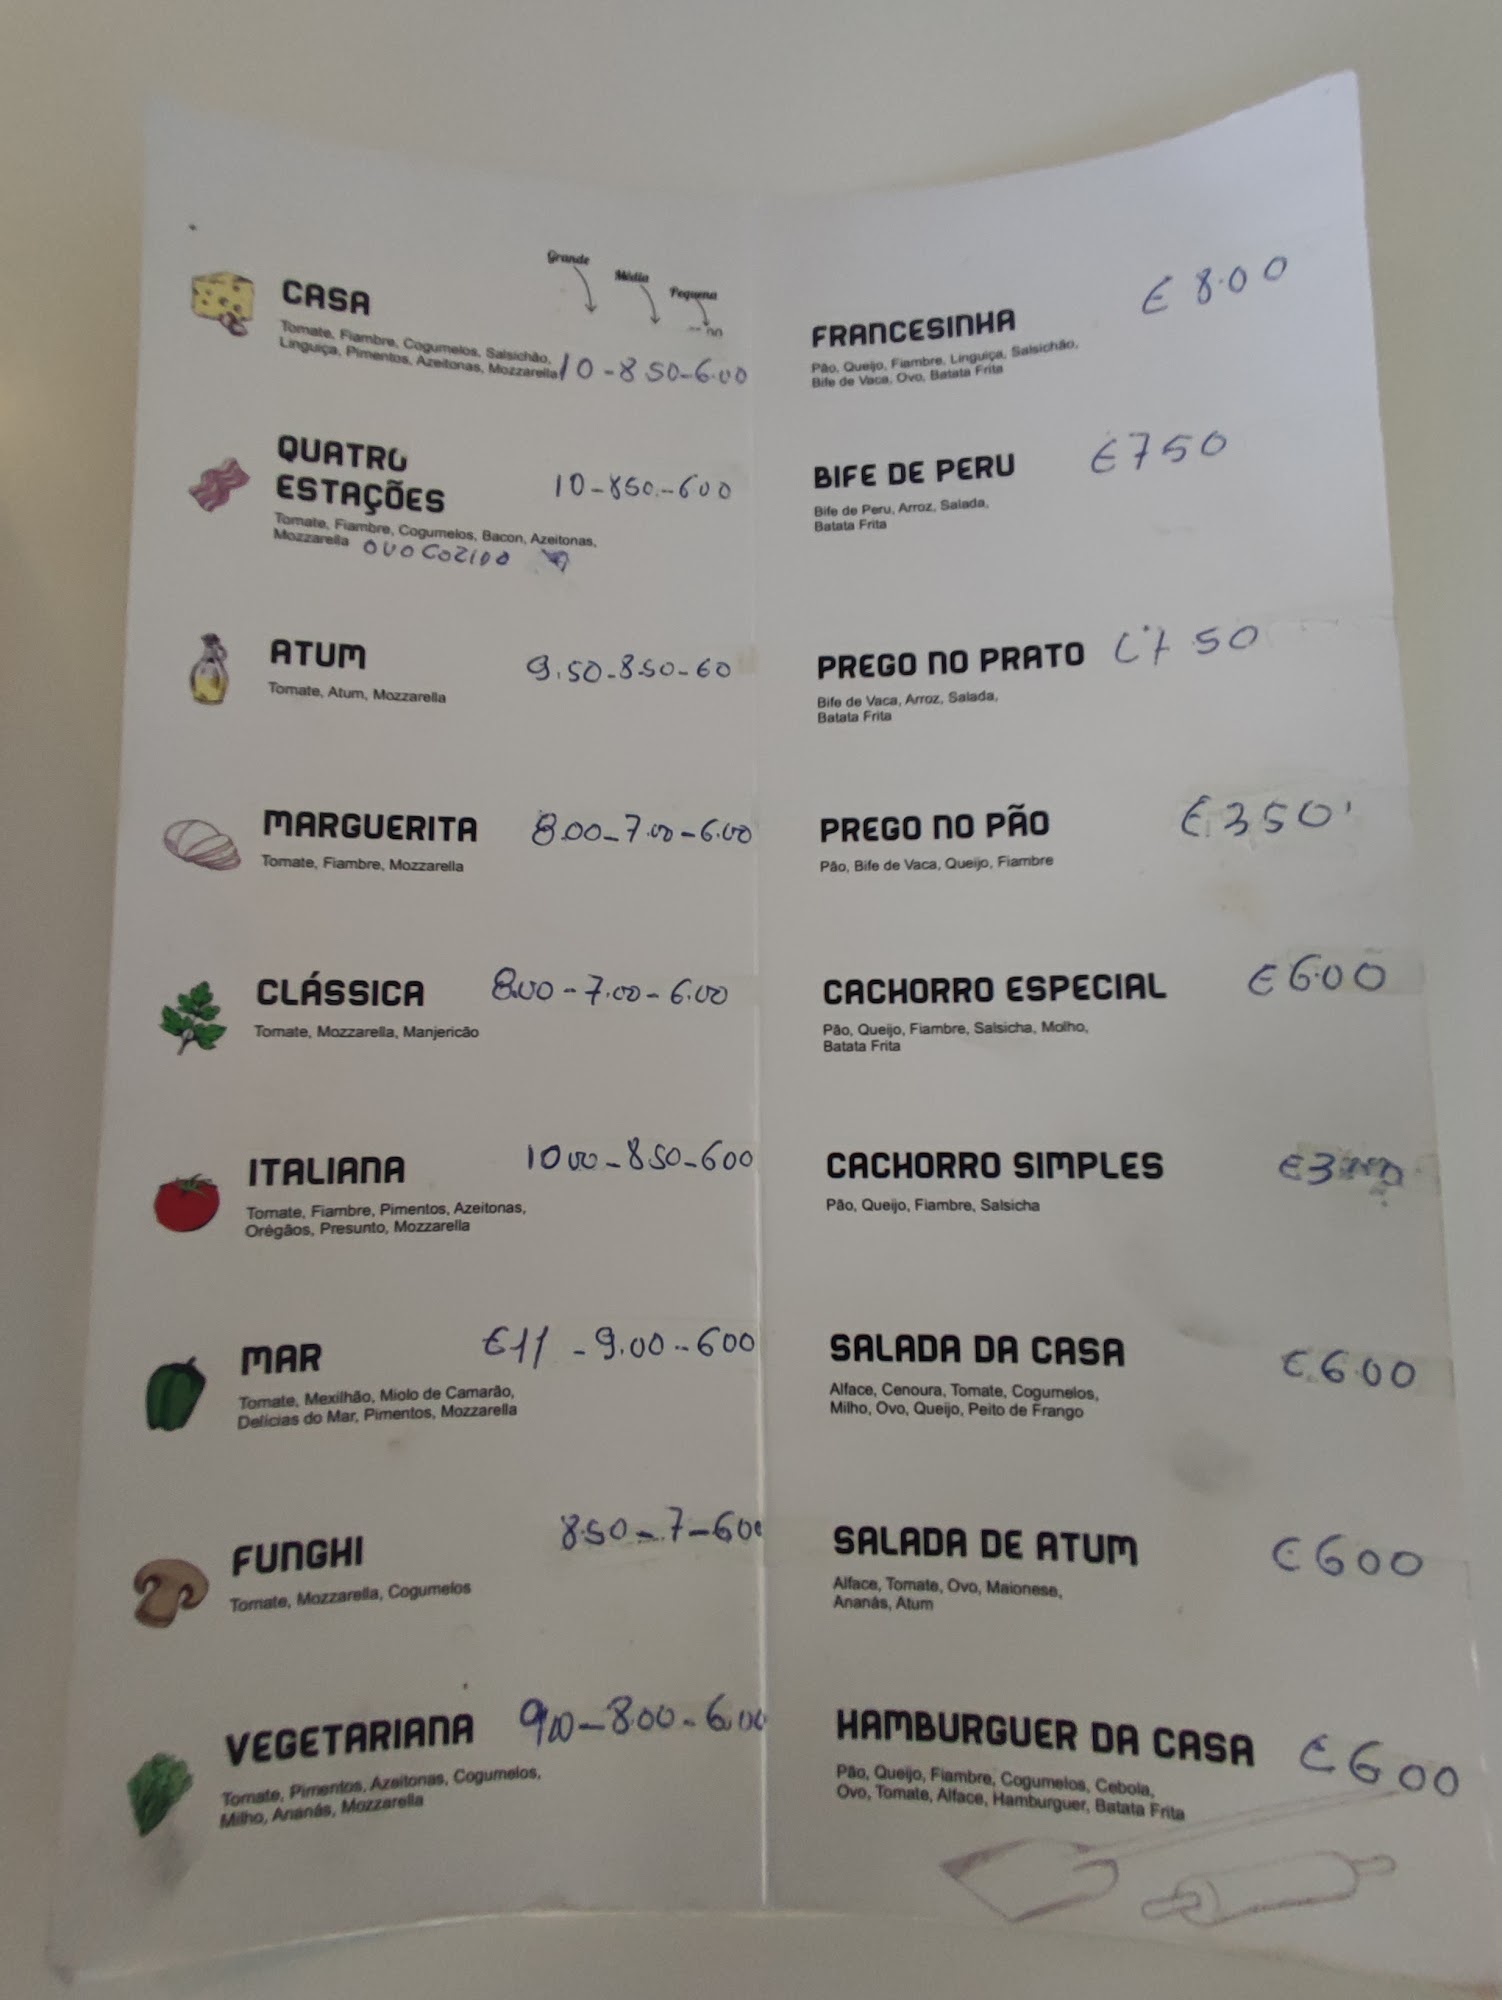 Grande
Média
Pequena
CASA
Tomate, Fiambre, Cogumelos, Salsichão,
Linguiça, Pimentos, Azeitonas, Mozzarella
10-850-6.00
QUATRO
ESTAÇÕES
10-850-600
Tomate, Fiambre, Cogumelos, Bacon, Azeitonas,
Mozzarella OVO COZIDO
ATUM
9.50-850-60
Tomate, Atum, Mozzarella
MARGUERITA
8.00-7.00-6.00
Tomate, Fiambre, Mozzarella
CLÁSSICA
8.00-7.00-6.00
Tomate, Mozzarella, Manjericão
ITALIANA
1000-850-600
Tomate, Fiambre, Pimentos, Azeitonas,
Orégãos, Presunto, Mozzarella
MAR
€11-9.00-600
Tomate, Mexilhão, Miolo de Camarão,
Delícias do Mar, Pimentos, Mozzarella
FUNGHI
8.50-7-600
Tomate, Mozzarella, Cogumelos
VEGETARIANA
900-800-6.00
Tomate, Pimentos, Azeitonas, Cogumelos,
Milho, Ananás, Mozzarella
FRANCESINHA
€ 8.00
Pão, Queijo, Fiambre, Linguiça, Salsichão,
Bife de Vaca, Ovo, Batata Frita
BIFE DE PERU
€750
Bife de Peru, Arroz, Salada,
Batata Frita
PREGO NO PRATO
€7.50
Bife de Vaca, Arroz, Salada,
Batata Frita
PREGO NO PÃO
€350
Pão, Bife de Vaca, Queijo, Fiambre
CACHORRO ESPECIAL
€6.00
Pão, Queijo, Fiambre, Salsicha, Molho,
Batata Frita
CACHORRO SIMPLES
Pão, Queijo, Fiambre, Salsicha
SALADA DA CASA
€6.00
Alface, Cenoura, Tomate, Cogumelos,
Milho, Ovo, Queijo, Peito de Frango
SALADA DE ATUM
€600
Alface, Tomate, Ovo, Maionese,
Ananás, Atum
HAMBURGUER DA CASA
€600
Pão, Queijo, Fiambre, Cogumelos, Cebola,
Ovo, Tomate, Alface, Hamburguer, Batata Frita